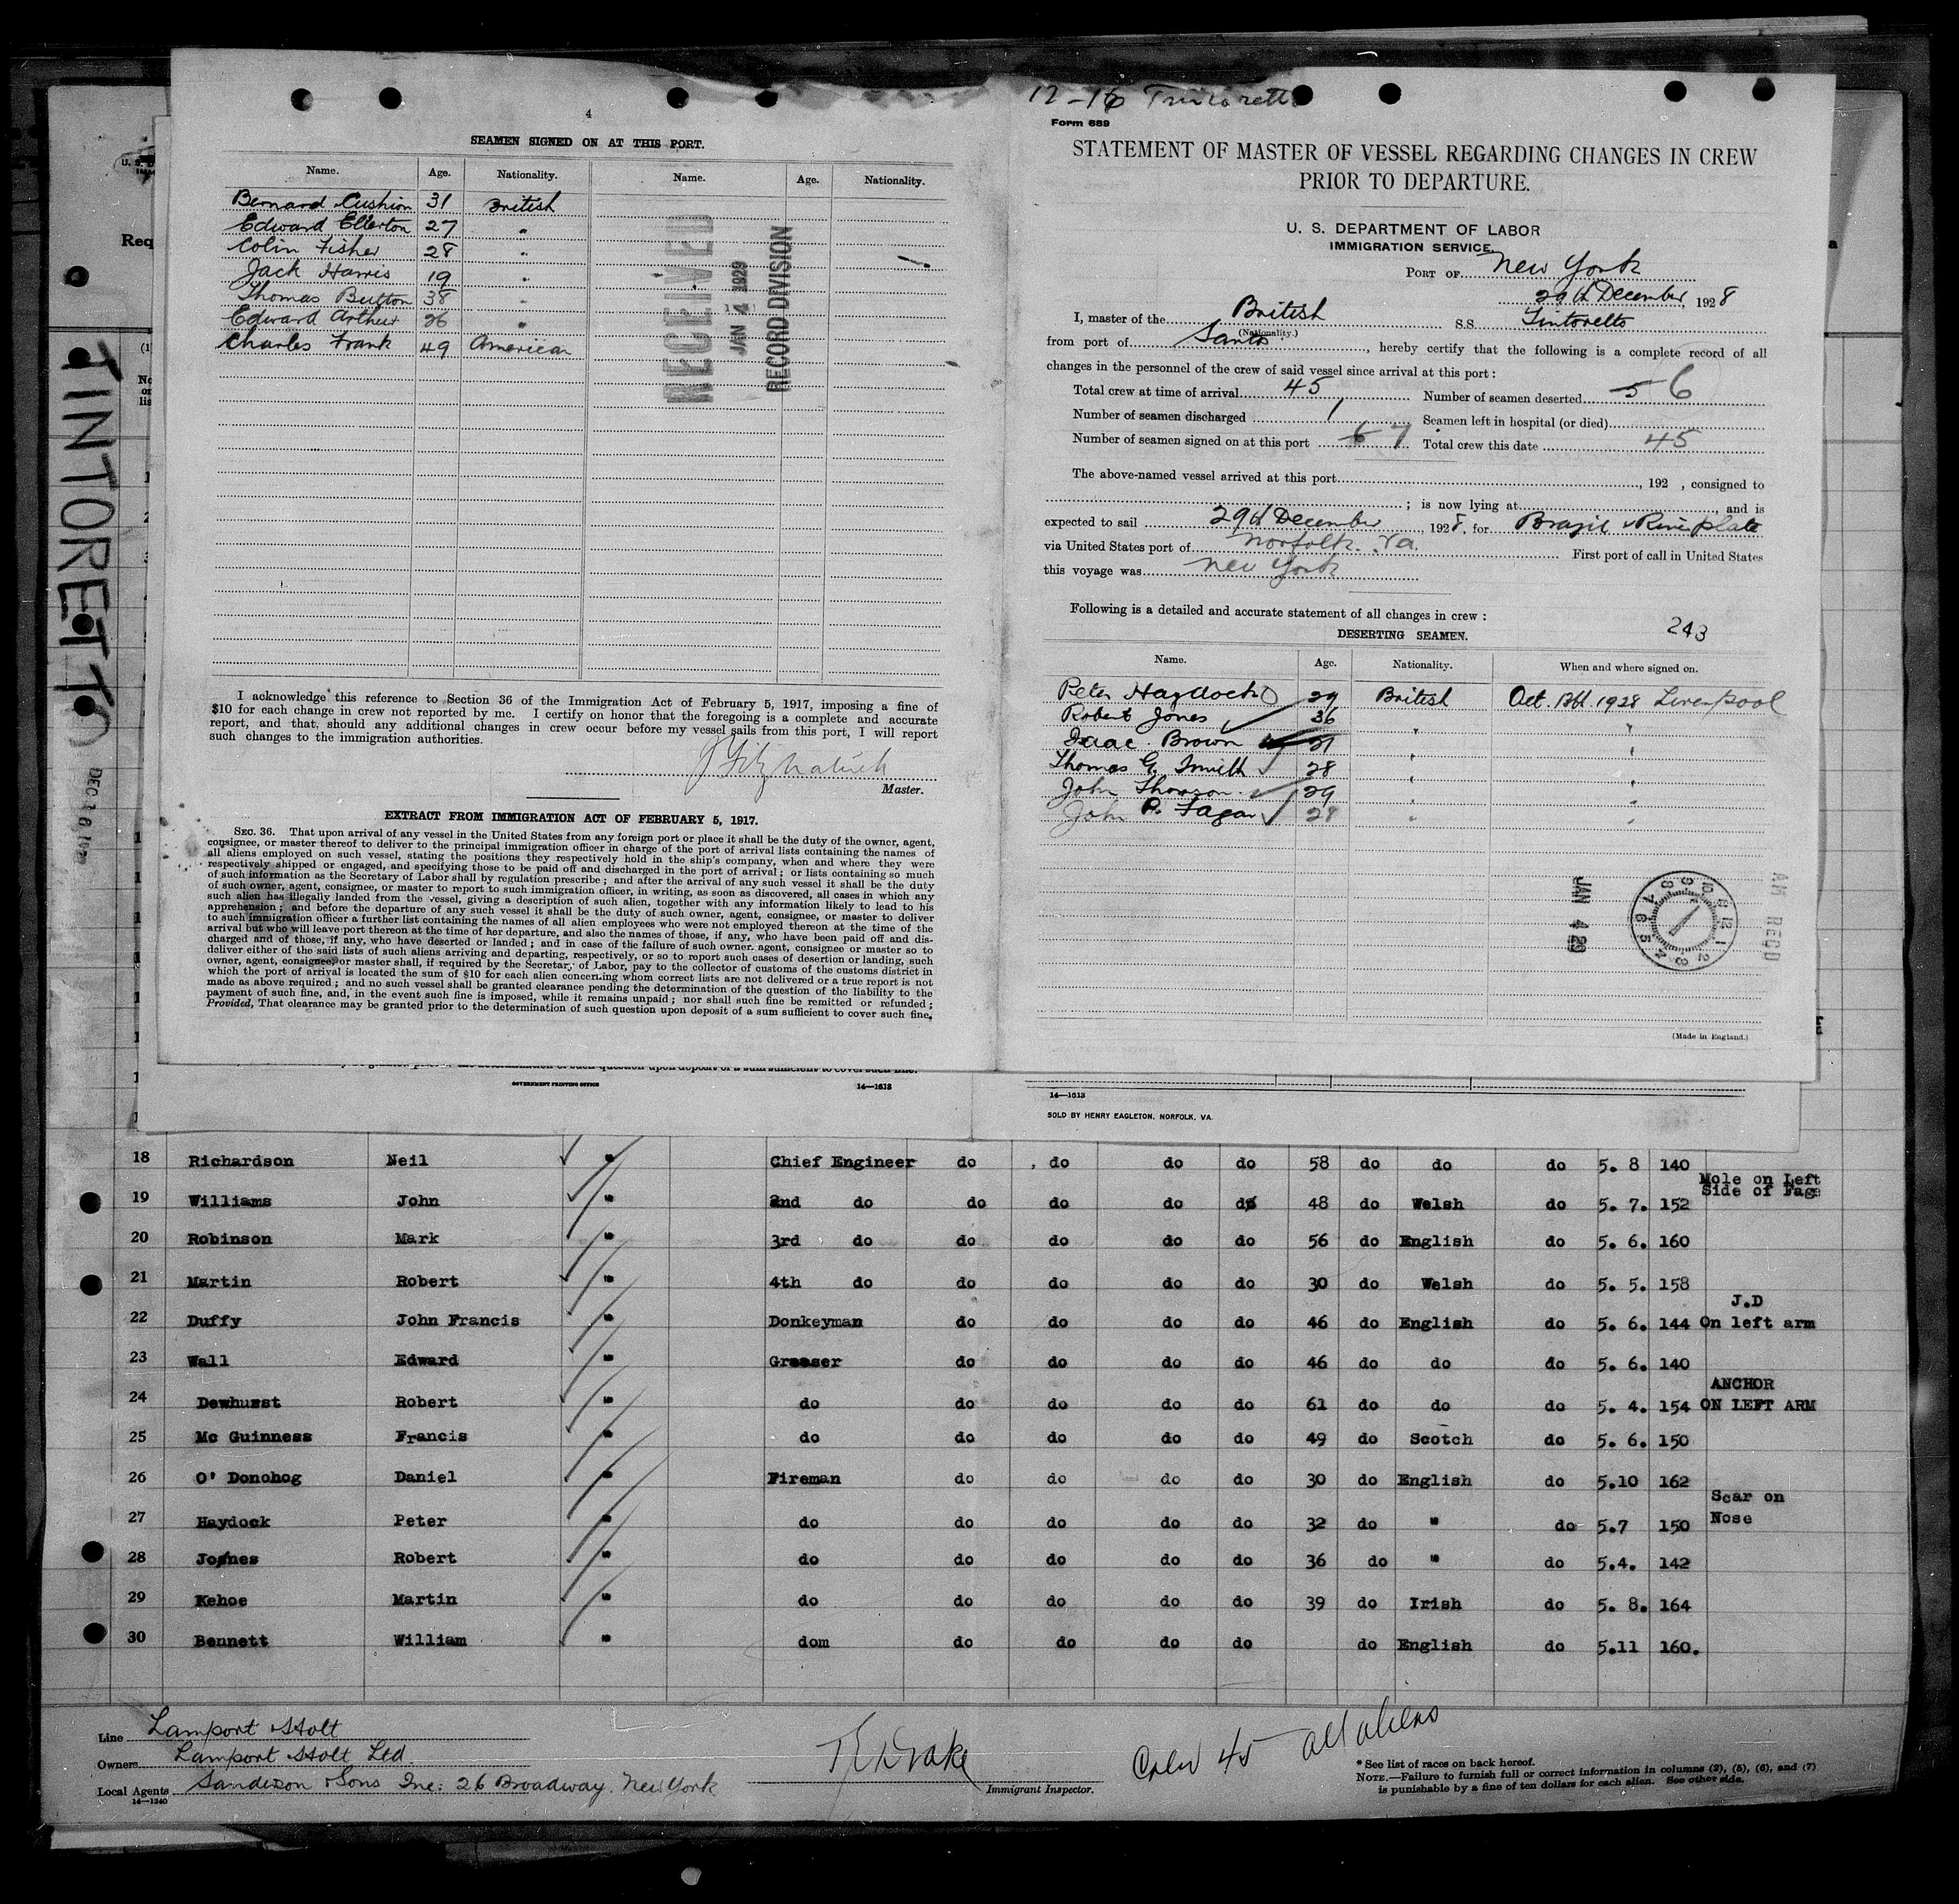 4
SEAMEN SIGNED ON AT THIS PORT.
Name. Age. Nationality. Name. Age. Nationality.
Bernard Cushion 31 British
Edward Ellerton 27 "
Colin Fisher 28 "
Jack Harris 19 "
Thomas Button 38 "
Edward Arthur 26 "
Charles Frank 49 American
RECEIVED
JAN 4 1929
RECORD DIVISION
I acknowledge this reference to Section 36 of the Immigration Act of February 5, 1917, imposing a fine of
$10 for each change in crew not reported by me. I certify on honor that the foregoing is a complete and accurate
report, and that, should any additional changes in crew occur before my vessel sails from this port, I will report
such changes to the immigration authorities.
Master.
EXTRACT FROM IMMIGRATION ACT OF FEBRUARY 5, 1917.
SEC. 36. That upon arrival of any vessel in the United States from any foreign port or place it shall be the duty of the owner, agent,
consignee, or master thereof to deliver to the principal immigration officer in charge of the port of arrival lists containing the names of
all aliens employed on such vessel, stating the positions they respectively hold in the ship's company, when and where they were
respectively shipped or engaged, and specifying those to be paid off and discharged in the port of arrival; or lists containing so much
of such information as the Secretary of Labor shall by regulation prescribe; and after the arrival of any such vessel it shall be the duty
of such owner, agent, consignee, or master to report to such immigration officer, in writing, as soon as discovered, all cases in which any
such alien has illegally landed from the vessel, giving a description of such alien, together with any information likely to lead to his
apprehension; and before the departure of any such vessel it shall be the duty of such owner, agent, consignee, or master to deliver
to such immigration officer a further list containing the names of all alien employees who were not employed thereon at the time of the
arrival but who will leave port thereon at the time of her departure, and also the names of those, if any, who have been paid off and dis-
charged and of those, if any, who have deserted or landed; and in case of the failure of such owner. agent, consignee or master so to
deliver either of the said lists of such aliens arriving and departing, respectively, or so to report such cases of desertion or landing, such
owner, agent, consignee, or master shall, if required by the Secretary of Labor, pay to the collector of customs of the customs district in
which the port of arrival is located the sum of $10 for each alien concerning whom correct lists are not delivered or a true report is not
made as above required; and no such vessel shall be granted clearance pending the determination of the question of the liability to the
payment of such fine, and, in the event such fine is imposed, while it remains unpaid; nor shall such fine be remitted or refunded;
Provided, That clearance may be granted prior to the determination of such question upon deposit of a sum sufficient to cover such fine.
GOVERNMENT PRINTING OFFICE 14—1613
12-16
Form 689
STATEMENT OF MASTER OF VESSEL REGARDING CHANGES IN CREW
PRIOR TO DEPARTURE.
U. S. DEPARTMENT OF LABOR
IMMIGRATION SERVICE.
PORT OF New York
29th December 1928
I, master of the British S.S. Tintoretto
(Nationality.)
from port of Santos, hereby certify that the following is a complete record of all
changes in the personnel of the crew of said vessel since arrival at this port:
Total crew at time of arrival 45 Number of seamen deserted 5 6
Number of seamen discharged 1 Seamen left in hospital (or died)
Number of seamen signed on at this port 6 7 Total crew this date 45
The above-named vessel arrived at this port , 192 , consigned to
; is now lying at , and is
expected to sail 29th December 1928, for Brazil & River plate
via United States port of Norfolk. Va. First port of call in United States
this voyage was New York
Following is a detailed and accurate statement of all changes in crew:
243
DESERTING SEAMEN.
Name. Age. Nationality. When and where signed on.
Peter Haydock 29 British Oct. 13th 1928 Liverpool
Robert Jones 36 " "
Isaac Brown 21 " "
Thomas G. Smith 28 " "
John Thomson 29 " "
John P. Fagan 28 " "
JAN 4 29
AM REC'D
(Made in England.)
14—1613
SOLD BY HENRY EAGLETON, NORFOLK, VA.
TINTORETTO
Req
18 Richardson Neil " Chief Engineer do do do do 58 do do do 5. 8 140
19 Williams John " 2nd do do do do do 48 do Welsh do 5. 7. 152 Mole on Left Side of Face
20 Robinson Mark " 3rd do do do do do 56 do English do 5. 6. 160
21 Martin Robert " 4th do do do do do 30 do Welsh do 5. 5. 158
22 Duffy John Francis " Donkeyman do do do do 46 do English do 5. 6. 144 J.D On left arm
23 Wall Edward " Greaser do do do do 46 do do do 5. 6. 140
24 Dewhurst Robert " do do do do do 61 do do do 5. 4. 154 ANCHOR ON LEFT ARM
25 Mc Guinness Francis " do do do do do 49 do Scotch do 5. 6. 150
26 O' Donohog Daniel " Fireman do do do do 30 do English do 5.10 162
27 Haydock Peter " do do do do do 32 do " do 5.7 150 Scar on Nose
28 Jones Robert " do do do do do 36 do " do 5.4. 142
29 Kehoe Martin " do do do do do 39 do Irish do 5. 8. 164
30 Bennett William " dom do do do do do English do 5.11 160.
Line Lamport & Holt
Owners Lamport & Holt Ltd.
Local Agents Sanderson & Sons Inc: 26 Broadway. New York
14—1240
Immigrant Inspector.
Crew 45 all aliens
* See list of races on back hereof.
NOTE.—Failure to furnish full or correct information in columns (2), (5), (6), and (7)
is punishable by a fine of ten dollars for each alien. See other side.